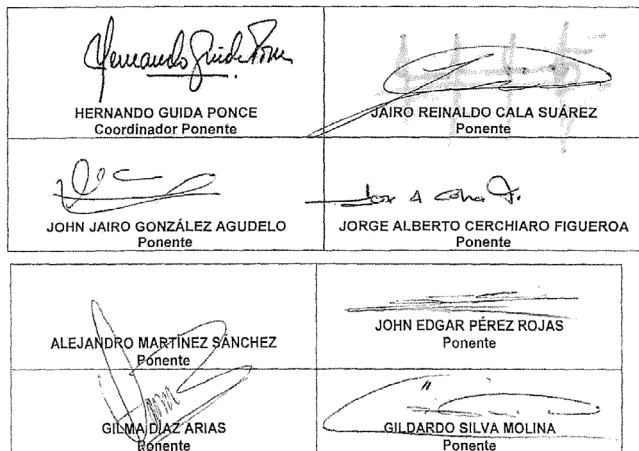 Hernando Guida Ponce
HERNANDO GUIDA PONCE
Coordinador Ponente
JAIRO REINALDO CALA SUÁREZ
Ponente
JOHN JAIRO GONZÁLEZ AGUDELO
Ponente
JORGE ALBERTO CERCHIARO FIGUEROA
Ponente
ALEJANDRO MARTÍNEZ SÁNCHEZ
Ponente
JOHN EDGAR PÉREZ ROJAS
Ponente
GILMA DÍAZ ARIAS
Ponente
GILDARDO SILVA MOLINA
Ponente